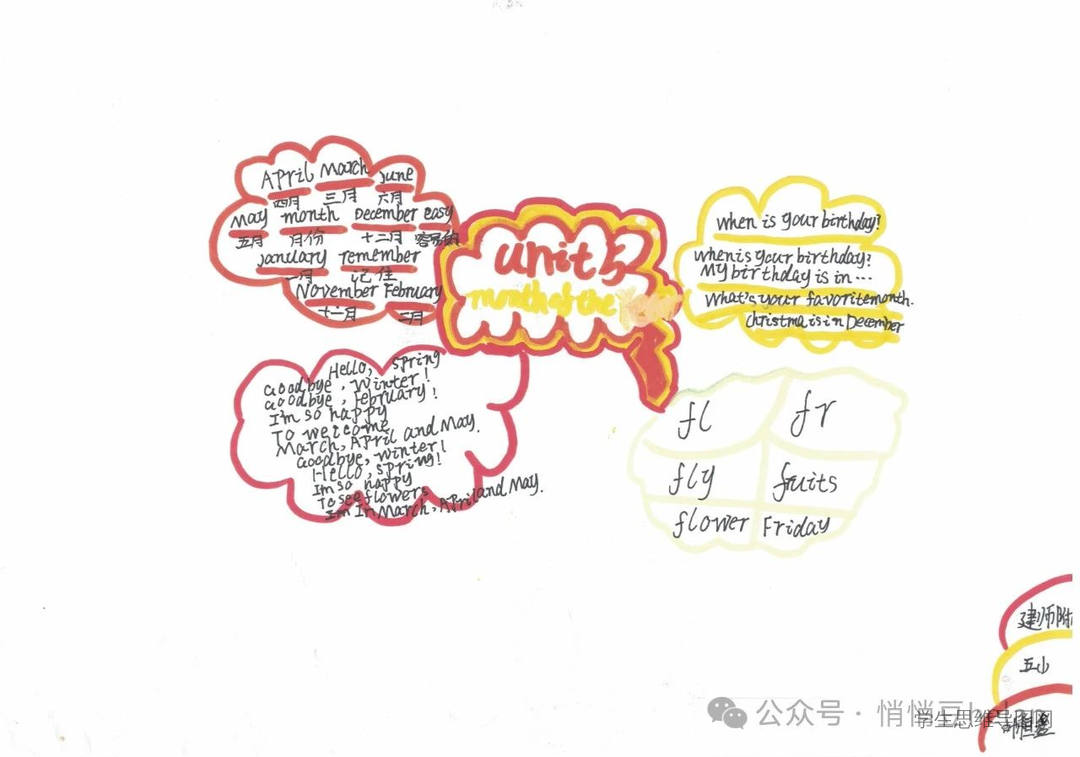 unit 5
month of the Year
April March June
四月 三月 六月
May month December easy
五月 月份 十二月 容易的
january remember
一月 记住
November February
十一月 二月
when is your birthday?
when is your birthday?
My birthday is in…
What's your favorite month.
christma is in December
Hello, spring
Goodbye, Winter!
Goodbye, February!
I'm so happy
To welcome
March, April and May.
Goodbye, winter!
Hello, spring!
I'm so happy
To see flowers
I'm In March, April and May.
fl fr
fly fruits
flower Friday
建师附
五山
公众号·悄悄豆
学生思维导图网